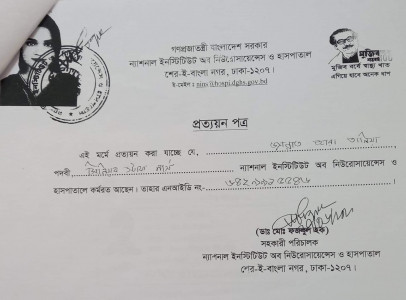 গণপ্রজাতন্ত্রী বাংলাদেশ সরকার
ন্যাশনাল ইনস্টিটিউট অব নিউরোসায়েন্সেস ও হাসপাতাল
শের-ই-বাংলা নগর, ঢাকা-১২০৭।
ই-মেইল : nins@hospi.dghs.gov.bd
মুজিব
মুজিব বর্ষে স্বাস্থ্য খাত
এগিয়ে যাবে অনেক ধাপ
প্রত্যয়ন পত্র
এই মর্মে প্রত্যয়ন করা যাচ্ছে যে,
পদবী সিনিয়র স্টাফ নার্স ন্যাশনাল ইনস্টিটিউট অব নিউরোসায়েন্সেস ও
হাসপাতালে কর্মরত আছেন। তাহার এনআইডি নং-
(ডাঃ মোঃ ফজলুল হক)
সহকারী পরিচালক
ন্যাশনাল ইনস্টিটিউট অব নিউরোসায়েন্সেস ও হাসপাতাল
শের-ই-বাংলা নগর, ঢাকা-১২০৭।